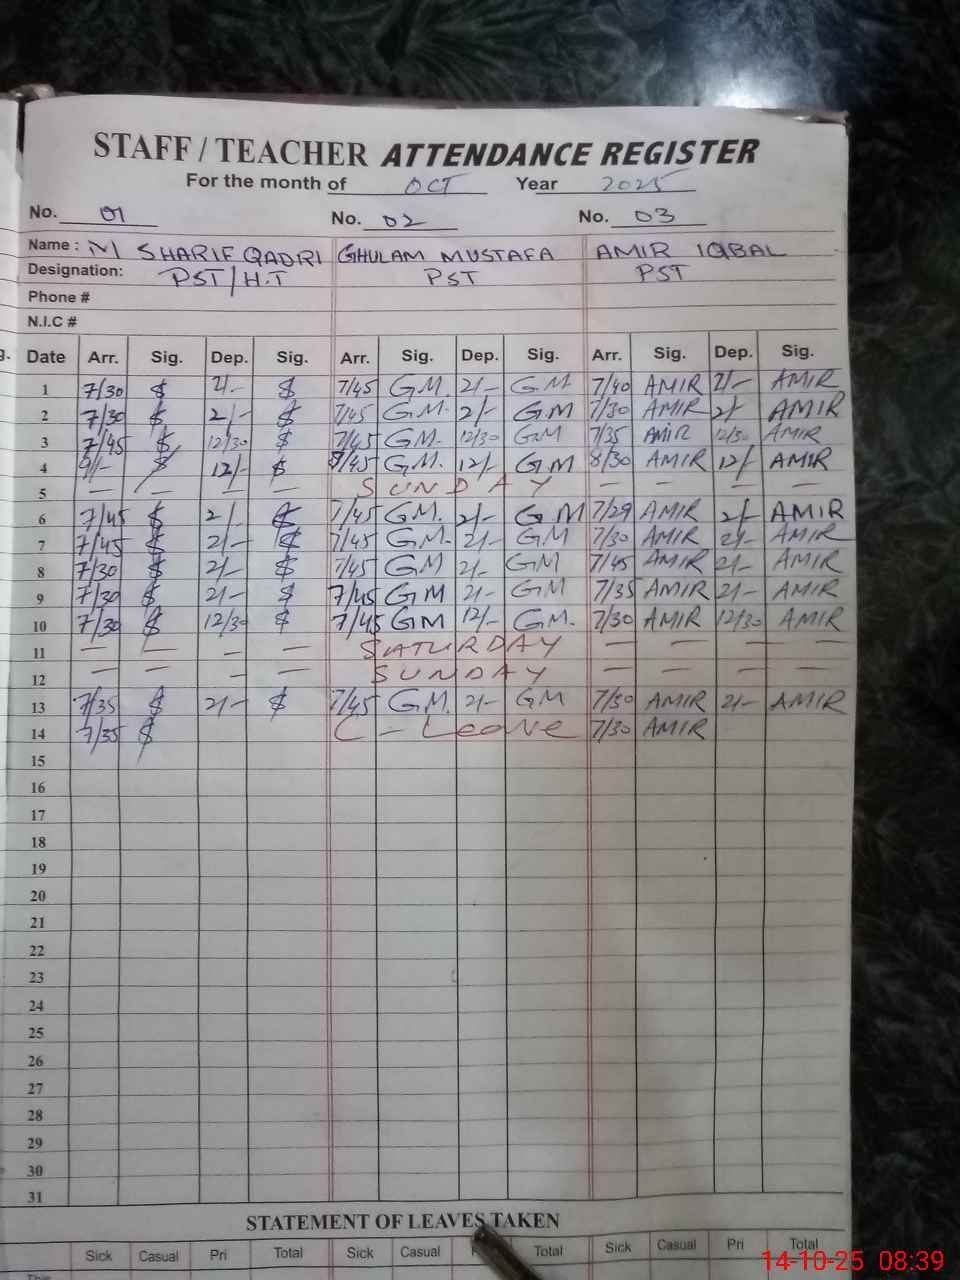 STAFF / TEACHER ATTENDANCE REGISTER
For the month of OCT Year 2025
No. 01 No. 02 No. 03
Name : M SHARIF QADRI GHULAM MUSTAFA AMIR IQBAL
Designation: PST/H.T PST PST
Phone #
N.I.C #
g. Date Arr. Sig. Dep. Sig. Arr. Sig. Dep. Sig. Arr. Sig. Dep. Sig.
1 7/30 $ 2/- $ 7/45 G.M. 2/- G.M 7/40 AMIR 2/- AMIR
2 7/30 $ 2/- $ 7/45 G.M. 2/- G.M 7/30 AMIR 2/- AMIR
3 7/45 $ 12/30 $ 7/45 G.M. 12/30 G.M 7/35 AMIR 12/30 AMIR
4 9/- $ 12/- $ 8/45 G.M. 12/- G.M 8/30 AMIR 12/- AMIR
5 — — — — SUNDAY — — — —
6 7/45 $ 2/- $ 7/45 G.M. 2/- G.M 7/29 AMIR 2/- AMIR
7 7/45 $ 2/- $ 7/45 G.M. 2/- G.M 7/30 AMIR 2/- AMIR
8 7/30 $ 2/- $ 7/45 G.M 2/- G.M 7/45 AMIR 2/- AMIR
9 7/30 $ 2/- $ 7/45 G.M 2/- G.M 7/35 AMIR 2/- AMIR
10 7/30 $ 12/30 $ 7/45 G.M 12/- G.M. 7/30 AMIR 12/30 AMIR
11 — — — — SATURDAY — — — —
12 — — — — SUNDAY — — — —
13 7/35 $ 2/- $ 7/45 G.M. 2/- G.M 7/30 AMIR 2/- AMIR
14 7/35 $ C - Leave 7/30 AMIR
15
16
17
18
19
20
21
22
23
24
25
26
27
28
29
30
31
STATEMENT OF LEAVES TAKEN
Sick Casual Pri Total Sick Casual Total Sick Casual Pri Total
This
14-10-25 08:39